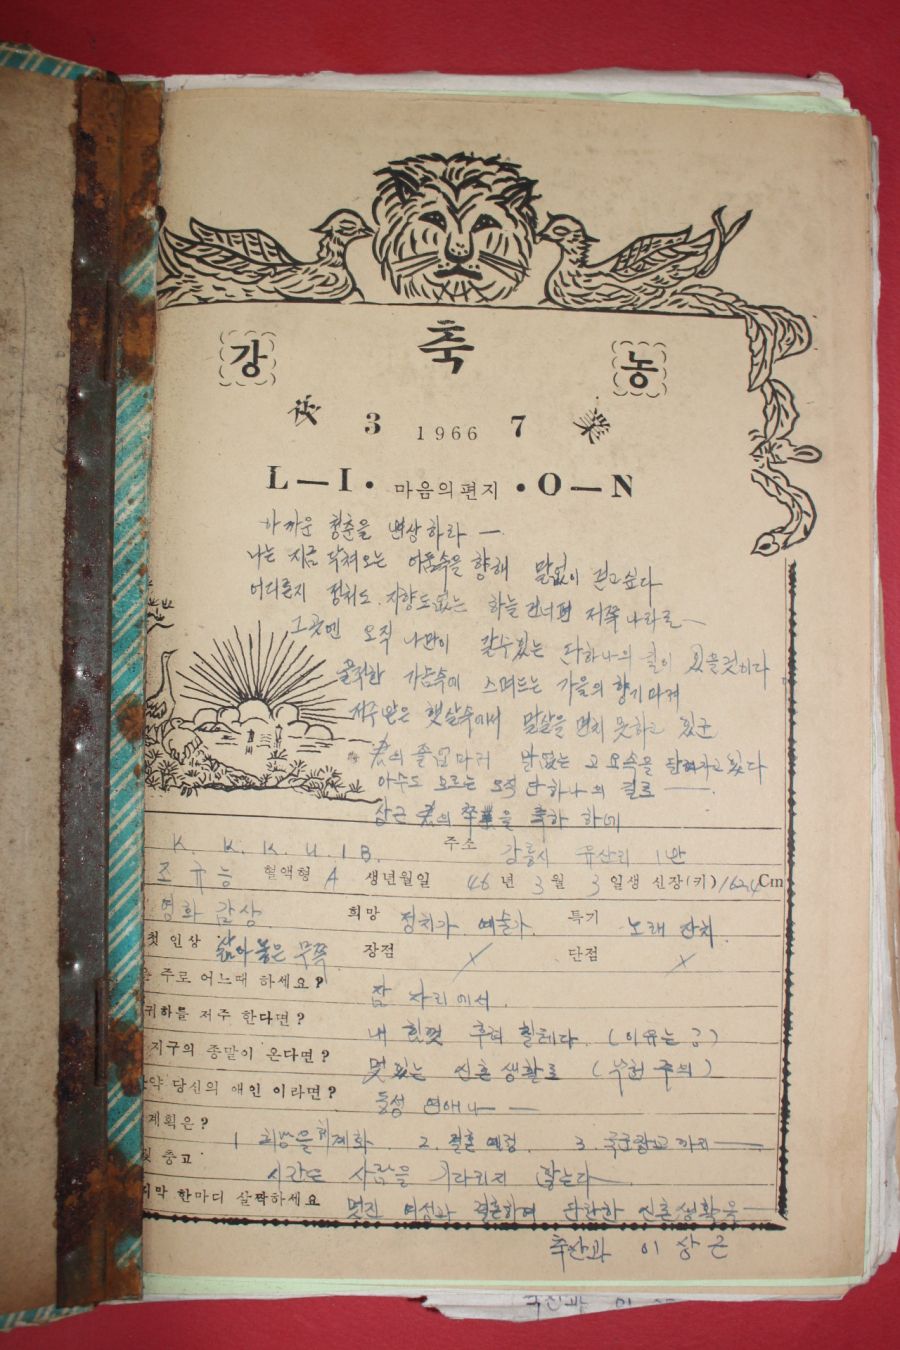 강 축 농
3 1966 7 業
L—I• 마음의편지 •O—N
아까운 청춘을 변상하라 —
나는 지금 닥쳐오는 어둠속을 향해 말없이 걷고싶다
어디론지 정처도 지향도없는 하늘건너편 저쪽나라로—
그곳엔 오직 나만이 갈수있는 단하나의 길이 있을것이다
가슴속에 스며드는 가을의 향기마저
저주받은 햇살속에서 못하고 있군
君의 졸업마저 말없는 그
아수도 모르는 오직 단하나의 길로 —
상근 君의 卒業을 축하 하네
K. K. K. U. I B. 주소 강릉시 유산리 1반
조규능 혈액형 A 생년월일 46년 3월 3일생 신장(키) 162.4Cm
영화 감상 희망 정치가 예술가. 특기 노래 잔치.
첫 인상 삶아놓은 무쪽 장점 × 단점 ×
주로 어느때 하세요? 잠 자리에서.
귀하를 저주 한다면? 내 힘껏 후려 칠테다. (이유는?)
지구의 종말이 온다면? 멋있는 신혼생활로
당신의 애인 이라면? 동성 연애나 —
계획은? 1 2. 결혼 예정. 3.
충고 시간은 사람을 기다리지 않는다.
한마디 살짝하세요 멋진 여성과 결혼하여 단란한 신혼생활을 —
축산과 이상근
축산과